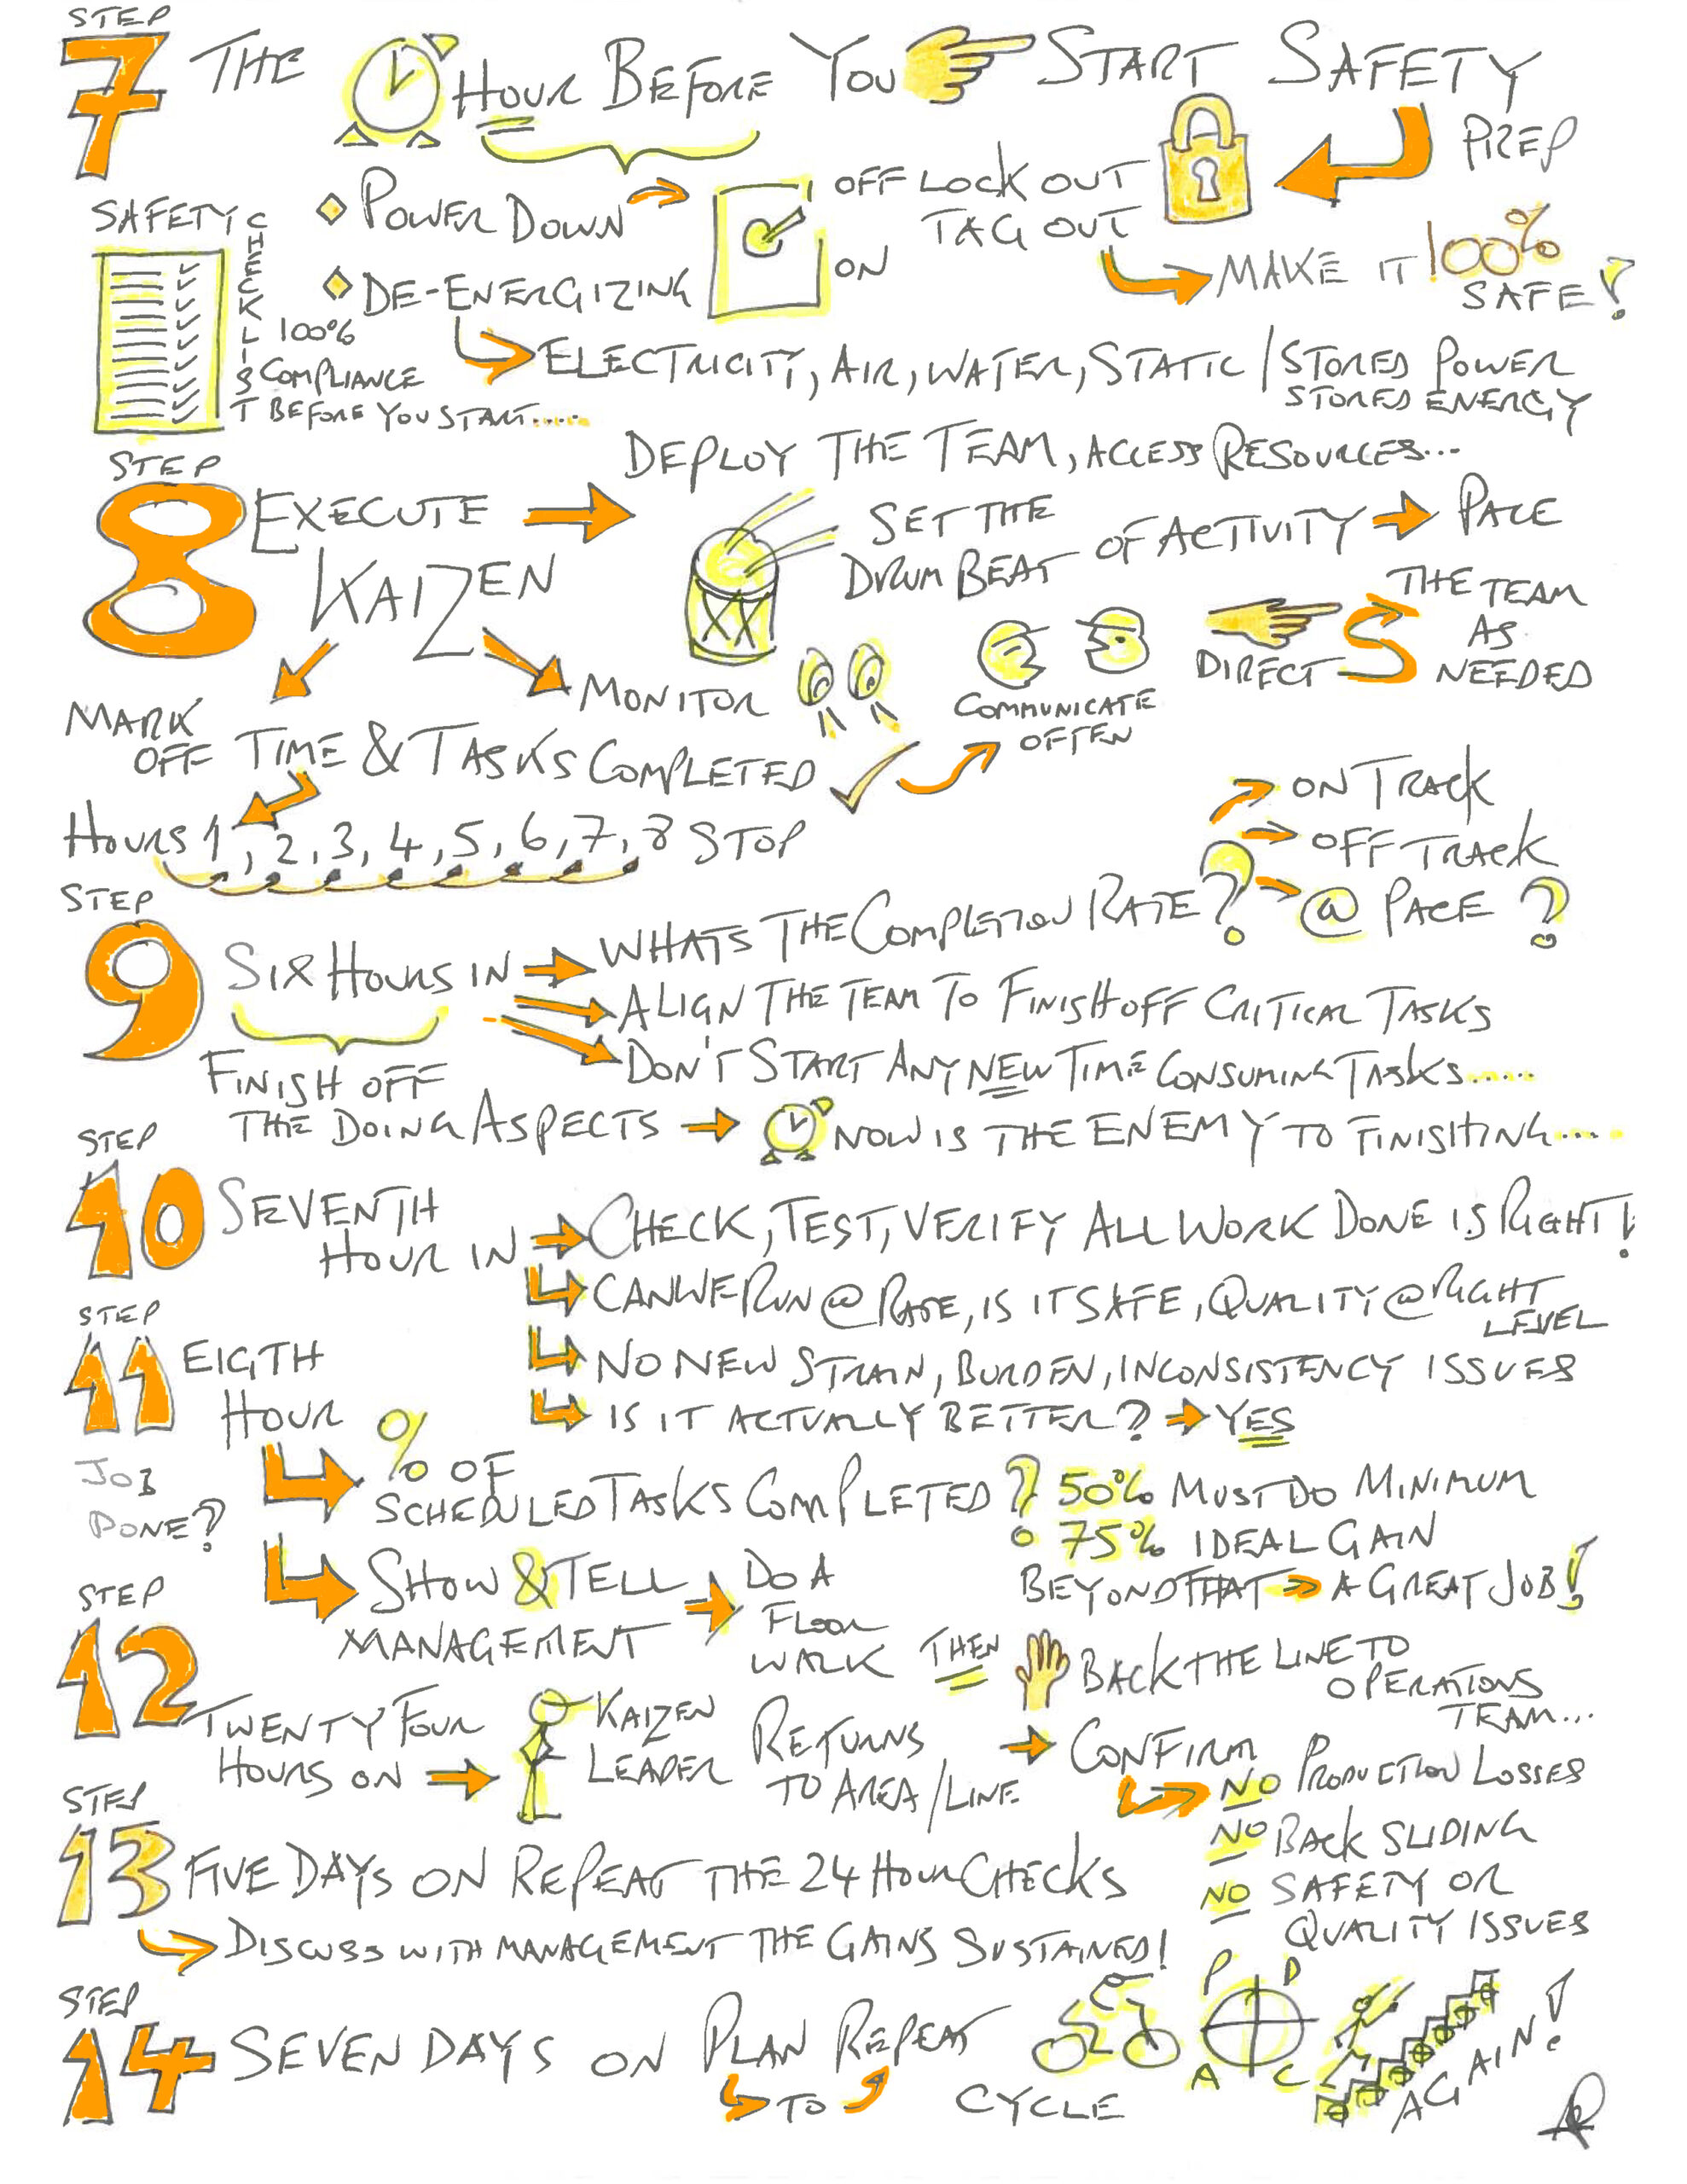 STEP
7 THE HOUR BEFORE YOU START SAFETY
PREP
SAFETY CHECKLIST
100%
COMPLIANCE
BEFORE YOU START.....
POWER DOWN
DE-ENERGIZING
OFF
ON
LOCK OUT
TAG OUT
MAKE IT 100%
SAFE!
ELECTRICITY, AIR, WATER, STATIC / STORED POWER
STORED ENERGY
STEP
8 EXECUTE
KAIZEN
DEPLOY THE TEAM, ACCESS RESOURCES...
SET THE
DRUM BEAT OF ACTIVITY PACE
MONITOR
COMMUNICATE
OFTEN
DIRECT
THE TEAM
AS
NEEDED
MARK
OFF TIME & TASKS COMPLETED
HOURS 1, 2, 3, 4, 5, 6, 7, 8 STOP
STEP
9 SIX HOURS IN
WHATS THE COMPLETION RATE?
ON TRACK
OFF TRACK
@ PACE?
ALIGN THE TEAM TO FINISH OFF CRITICAL TASKS
DON'T START ANY NEW TIME CONSUMING TASKS.....
FINISH OFF
THE DOING ASPECTS
NOW IS THE ENEMY TO FINISHING....
STEP
10 SEVENTH
HOUR IN
CHECK, TEST, VERIFY ALL WORK DONE IS RIGHT!
CAN WE RUN @ RATE, IS IT SAFE, QUALITY @ RIGHT
LEVEL
NO NEW STRAIN, BURDEN, INCONSISTENCY ISSUES
IS IT ACTUALLY BETTER? YES
STEP
11 EIGTH
HOUR
JOB
DONE?
% OF
SCHEDULED TASKS COMPLETED?
50% MUST DO MINIMUM
75% IDEAL GAIN
BEYOND THAT A GREAT JOB!
SHOW & TELL
MANAGEMENT
DO A
FLOOR
WALK
THEN
BACK THE LINE TO
OPERATIONS
TEAM...
STEP
12 TWENTY FOUR
HOURS ON
KAIZEN
LEADER
RETURNS
TO AREA/LINE
CONFIRM
NO PRODUCTION LOSSES
NO BACK SLIDING
NO SAFETY OR
QUALITY ISSUES
STEP
13 FIVE DAYS ON REPEAT THE 24 HOUR CHECKS
DISCUSS WITH MANAGEMENT THE GAINS SUSTAINED!
STEP
14 SEVEN DAYS ON PLAN REPEAT
TO
CYCLE
P D
A C
AGAIN!